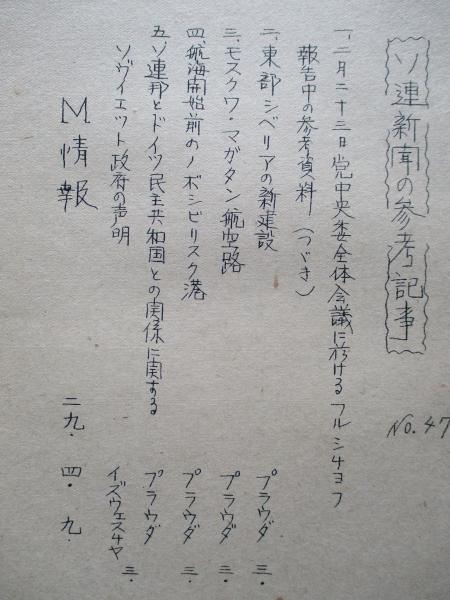 ソ連新聞の参考記事
No.47
一、二月二十三日党中央委全体会議に於けるフルシチヨフ
報告中の参考資料（つゞき）
二、東部シベリアの新建設 プラウダ 三.
三、モスクワ・マガタン航空路 プラウダ 三.
四、航海開始前のノボシビリスク港 プラウダ 三.
五、ソ連邦とドイツ民主共和国との関係に関する プラウダ
ソヴイエツト政府の声明 イズウェスチヤ 三.
M情報 二九.四.九.